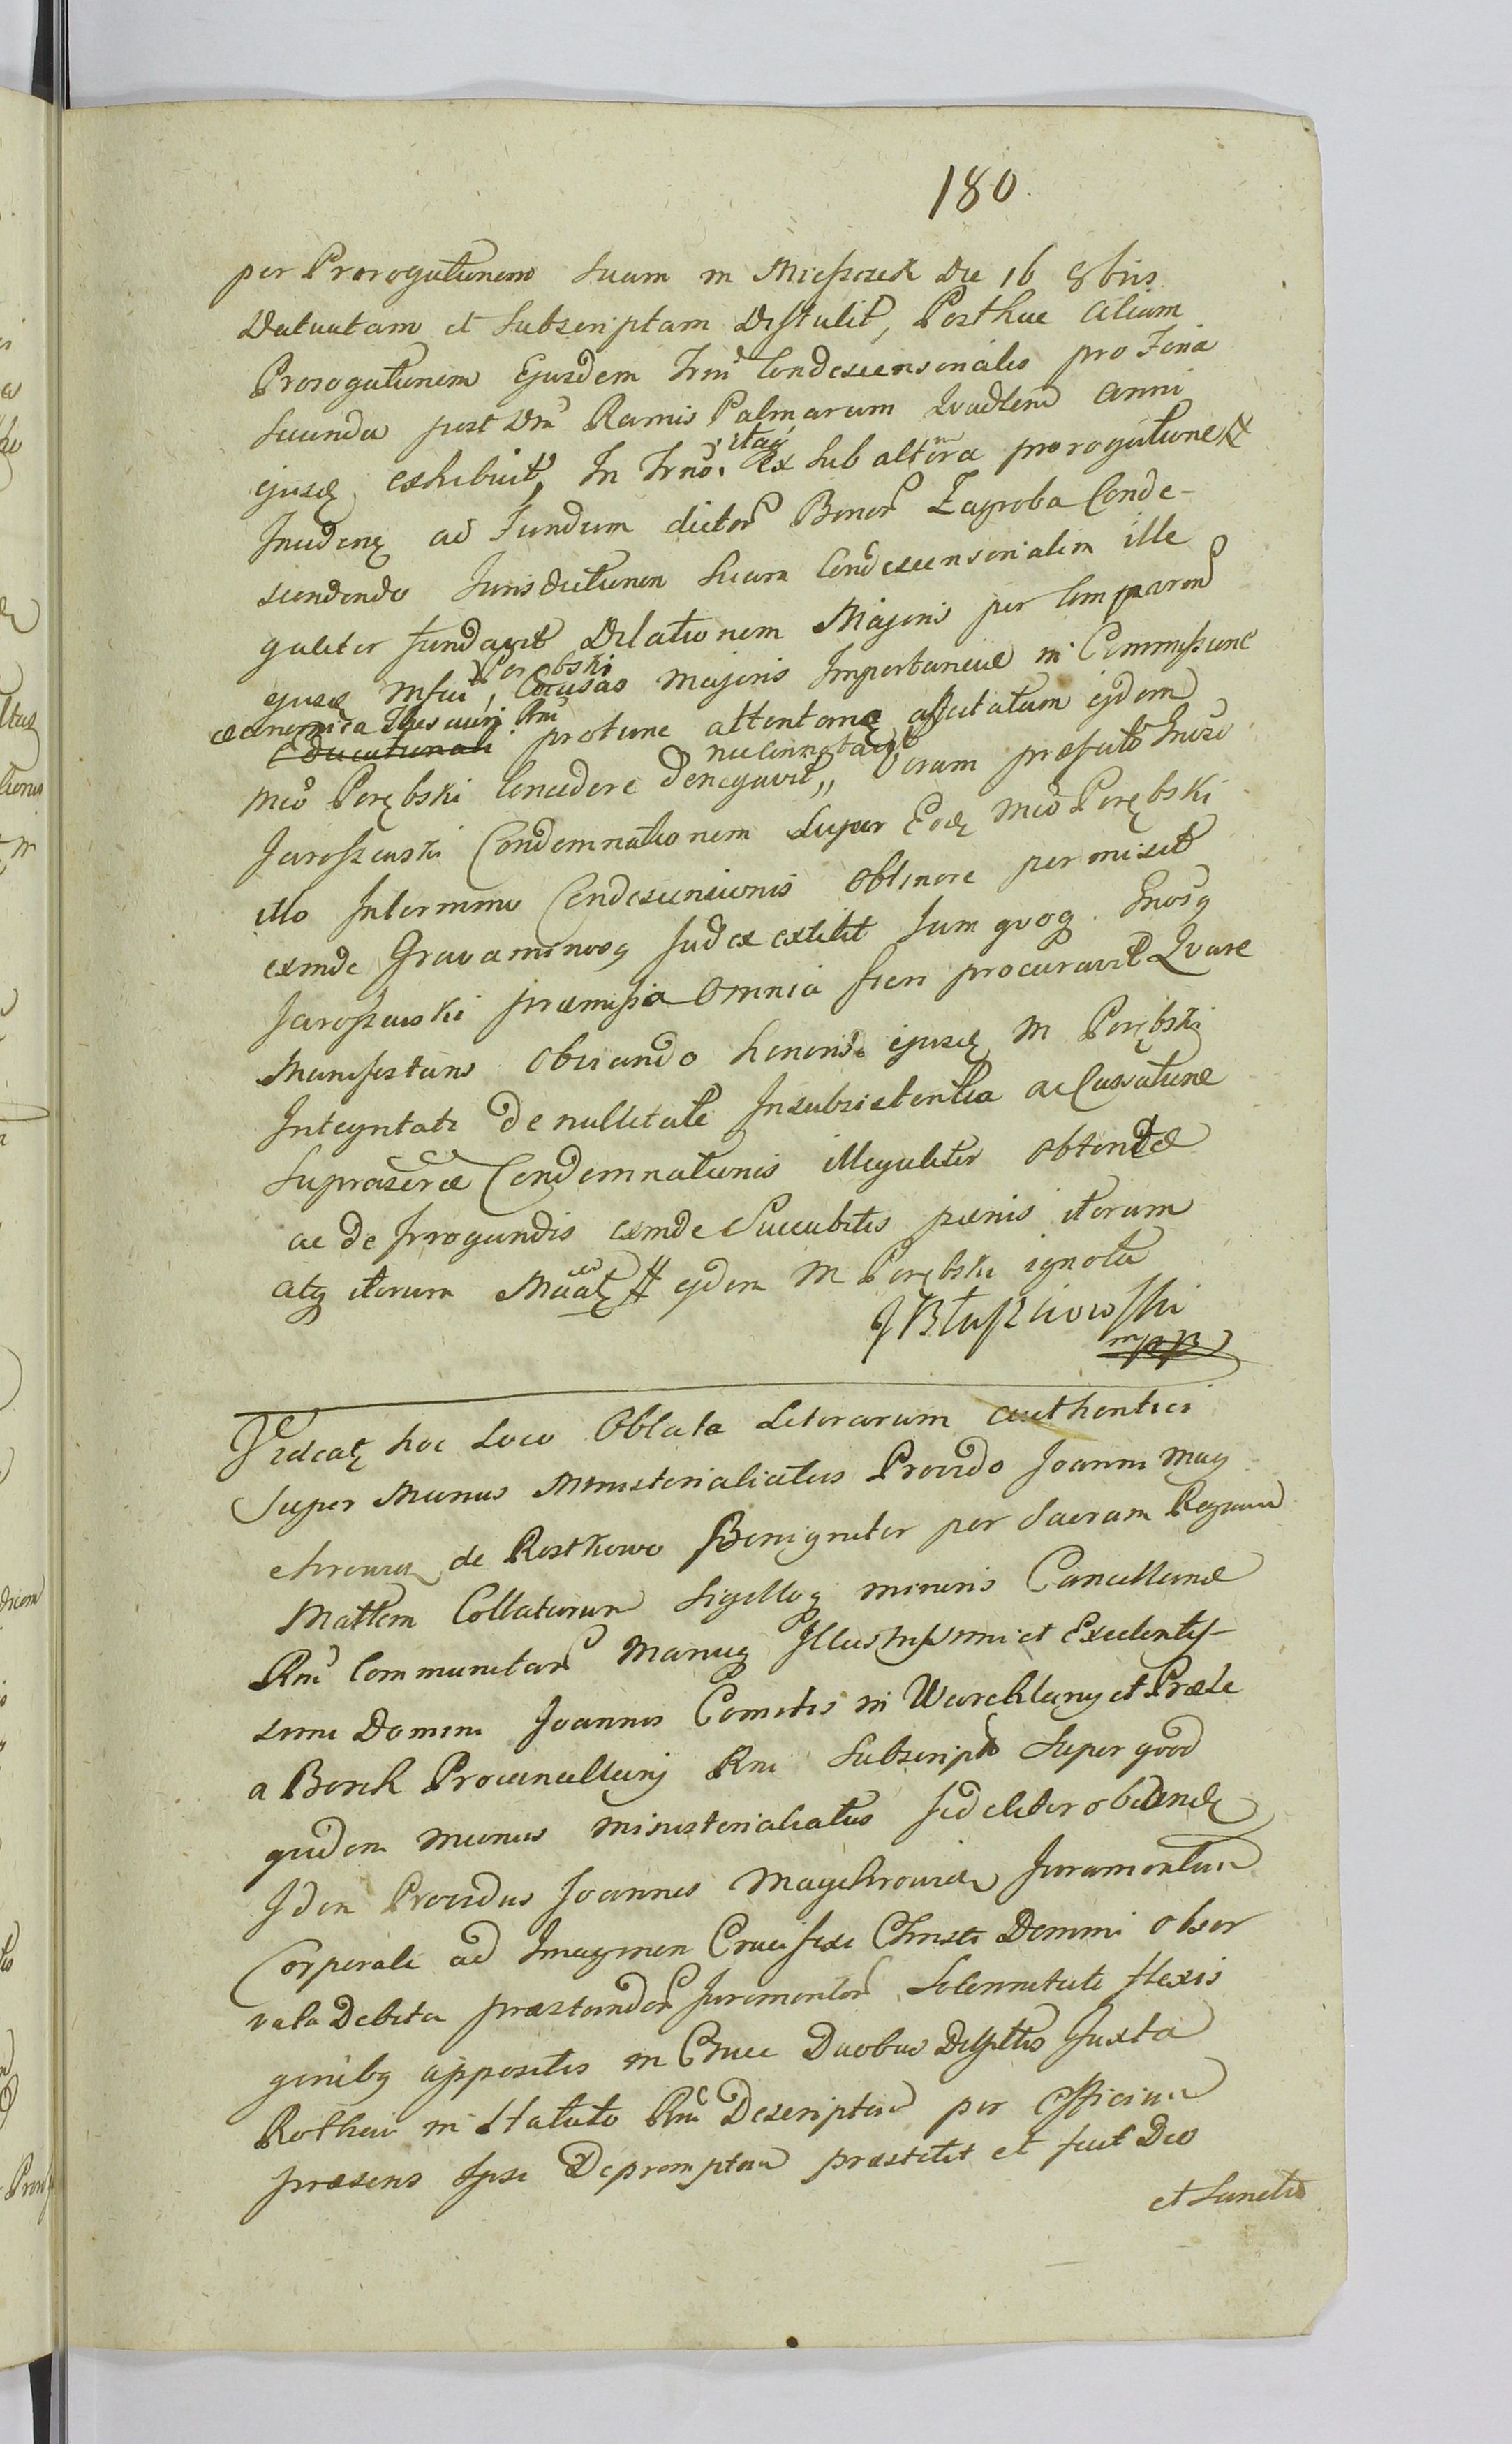 180.
per Prorogationem suam in Mießczek die 16 8bris
Datatam et subscriptam distulit, Posthac aliam
Prorogationem Ejusdem Trni Condescensorialis pro Feria
secunda post Dnī Ramis Palmarum Quadlem anni
ejusdę exhibuit, In Trno itaq̨ ex sub altera prorogatione
Incidenę ad Fundum dictor Bonor Zagroba Conde-
scendendo Jurisdictionem suam Condescensorialem ille
galiter fundavit Dilationem Majoris per Comparen
ejusdę Mfci Porębski Causae majoris Importanciae in Commissione
oeconomica Thesauri Rni protunc attentanę affectatam ejdem
Mco Porębski Concedere denegavit nec connotavit,, Verum praefato Gnoso
Jaroszewski Condemnationem super Eodę Mco Porębski
illo In termino Condescensionis obtinere permisit
exinde Gravaminosq Judex extitit tum quoq. Gnosq
Jaroszewski praemissa omnia fieri procuravit Quare
Manifestans obviando honoris ejusdę M Porębski
Integritati De nullitate Insubsistentia ac Cassatione
suprascrae Condemnationis illegaliter obtentae
ac de Irrogandis exinde Succubitis paenis iterum
atq iterum Maatę # ejdem M Porębski ignota
J Błaszkowski
mpp
Videatę hoc Loco Oblata Literarum authentici
super Munus Ministerialiatus Provido Joanni May
chrowicz de Rostkowo Benigniter per Sacram Regiam
Mattem Collatarum Sigilloq minoris Cancellariae
Rni Communitar Manuq Illustrissimi et Excelentis-
simi Domini Joannis Comitis in Warcklany et Praele
a Borch Procancellarij Rni Subscripto super quod
quidem munus ministerialiatus fideliter obeundę
Idem Providus Joannes Maychrowicz Juramentum
Corporale ad Imaginem Crucifixi Christi Domini obser
vata Debita praestandor Juramentor Solennitate flexis
genibq appositis in Cruce Duobus Digitis Juxta
Rotham in Statuto Rni Descriptam per Officium
praesens Ipsi Depromptam praestitit et fecit Deo
et Sanctis